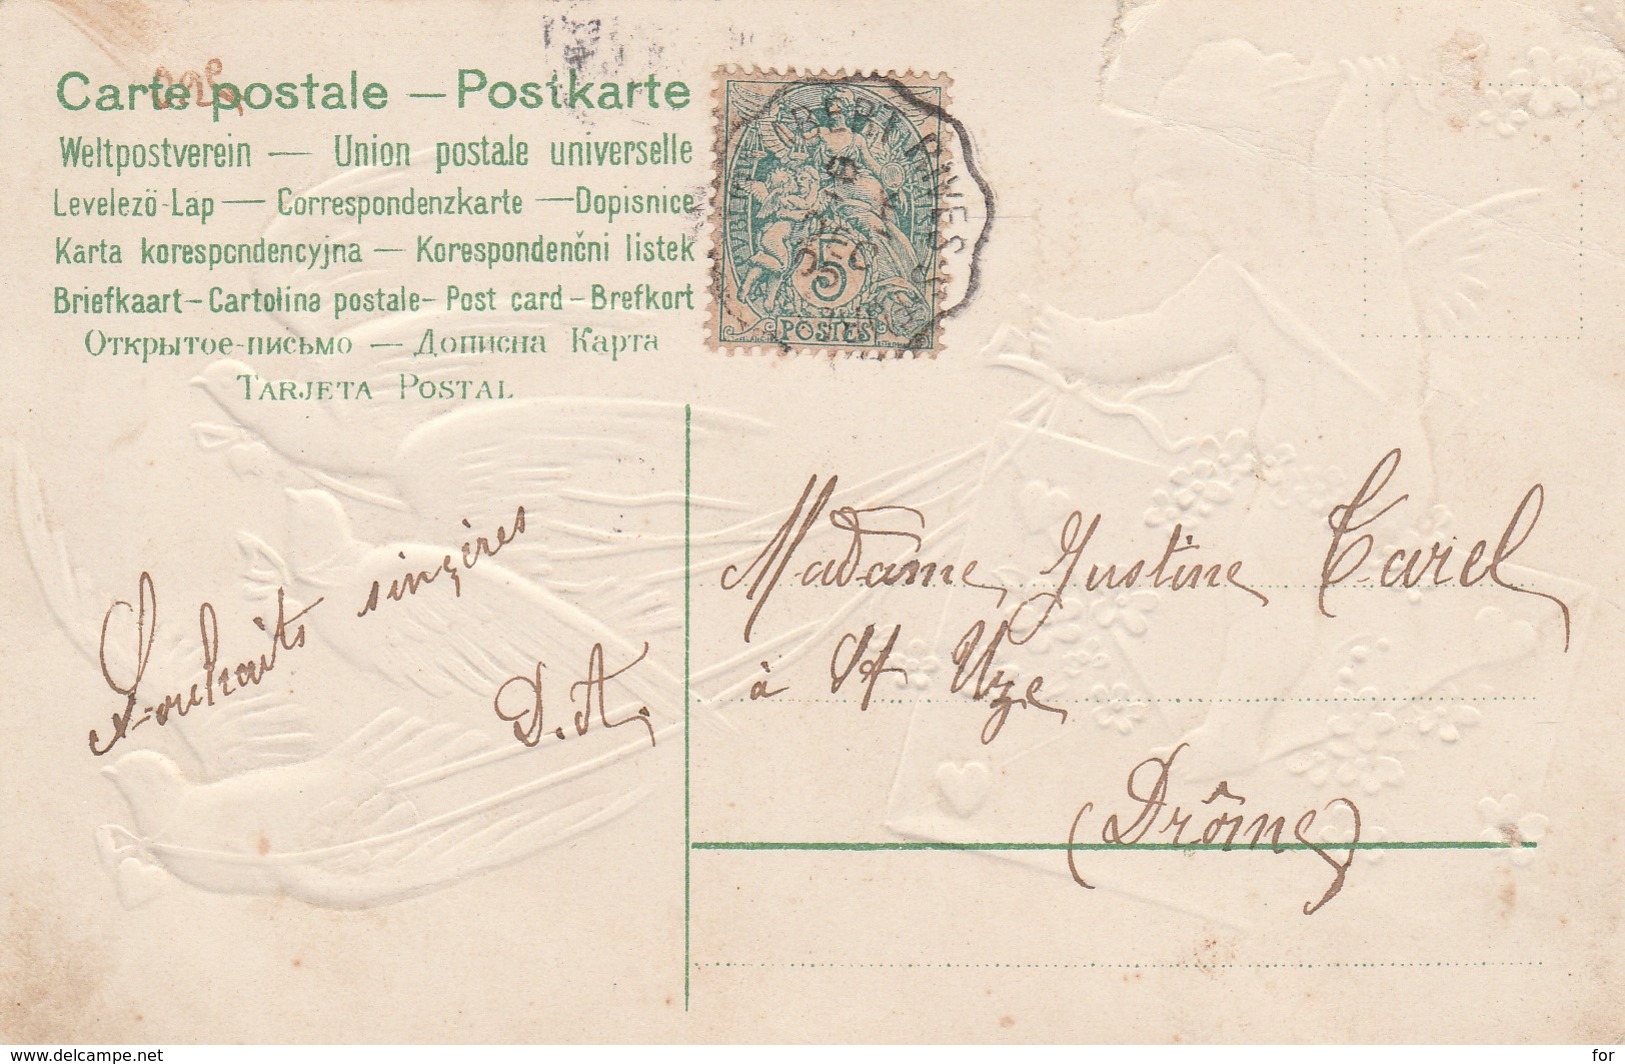 Carte postale — Postkarte
Weltpostverein — Union postale universelle
Levelezö-Lap — Correspondenzkarte — Dopisnice
Karta korespondencyjna — Korespondenčni listek
Briefkaart – Cartolina postale – Post card – Brefkort
Открытое-письмо — Дописна Карта
TARJETA POSTAL
RIVES
DEC
5
POSTES
Souhaits sinçères
D. A.
Madame Justine Carel
à St Uze
(Drôme)
www.delcampe.net
for